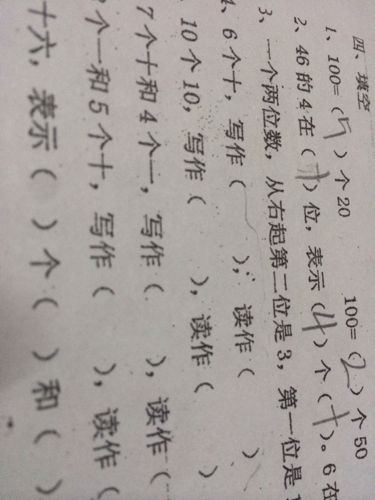 四、填空
1、100=(5)个20 100=(2)个50
2、46的4在(十)位，表示(4)个(十)。6在
3、一个两位数，从右起第二位是3，第一位是
4、6个十，写作( )，读作( )
10个10，写作( )，读作( )
7个十和4个一，写作( )，读作(
个一和5个十，写作( )，读作(
十六，表示( )个( )和( )